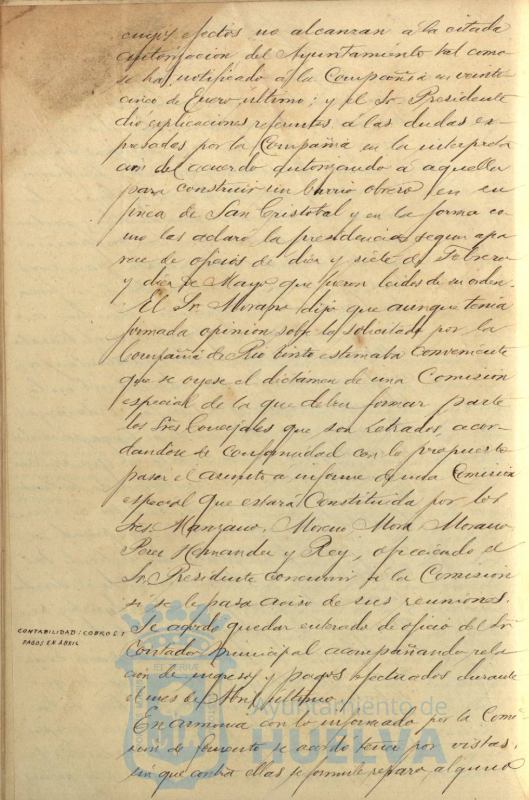 cuyos efectos no alcanzan a la citada
autorizacion del Ayuntamiento tal como
se ha notificado a la Compañia en veinte
cinco de Enero ultimo; y el Sr. Presidente
dio explicaciones referentes á las dudas ex-
presadas por la Compañia en la interpreta
cion del acuerdo autorizando á aquella
para construir un barrio obrero en su
finca de San Cristobal y en la forma co-
mo las aclaró la presidencia segun apa
rece de oficios de diez y siete de Febrero
y diez de Mayo que fueron leidos de su orden.
El Sr. Morano dijo que aunque tenia
formada opinion sobre lo solicitado por la
Compañia de Rio Tinto estimaba conveniente
que se oyese el dictamen de una Comision
especial de la que deben formar parte
los Sres Concejales que son Letrados, acor-
dandose de conformidad con lo propuesto
pasar el asunto á informe de una Comision
especial que estará Constituida por los
Sres. Manzano, Moreno, Mora, Morano,
Perez Hernandez y Rey, ofreciendo el
Sr. Presidente concurrir á la Comision
si se le pasa aviso de sus reuniones.
CONTABILIDAD: COBROS Y
PAGOS EN ABRIL
Se acordó quedar enterado de oficio del Sr.
Contador municipal acompañando rela
cion de ingresos y pagos efectuados durante
el mes de Abril ultimo.
En armonia con lo informado por la Comi
sion de fomento se acordó tener por vistas,
sin que contra ellas se formule reparo alguno
Ayuntamiento de
HUELVA